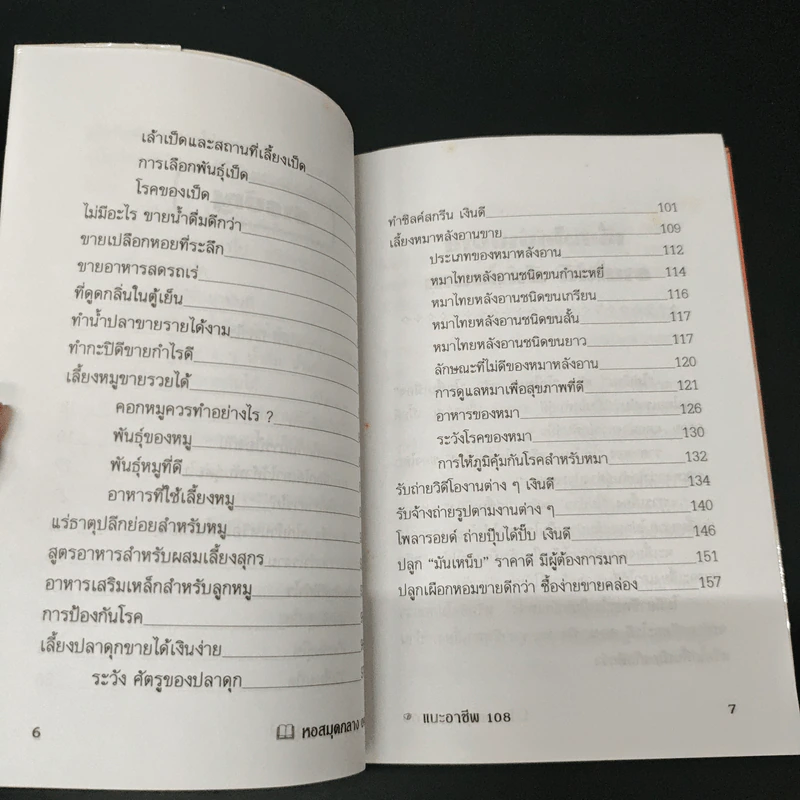 เล้าเป็ดและสถานที่เลี้ยงเป็ด
การเลือกพันธุ์เป็ด
โรคของเป็ด
ไม่มีอะไร ขายน้ำดื่มดีกว่า
ขายเปลือกหอยที่ระลึก
ขายอาหารสดรถเร่
ที่ดูดกลิ่นในตู้เย็น
ทำน้ำปลาขายรายได้งาม
ทำกะปิดีขายกำไรดี
เลี้ยงหมูขายรวยได้
คอกหมูควรทำอย่างไร ?
พันธุ์ของหมู
พันธุ์หมูที่ดี
อาหารที่ใช้เลี้ยงหมู
แร่ธาตุปลีกย่อยสำหรับหมู
สูตรอาหารสำหรับผสมเลี้ยงสุกร
อาหารเสริมเหล็กสำหรับลูกหมู
การป้องกันโรค
เลี้ยงปลาดุกขายได้เงินง่าย
ระวัง ศัตรูของปลาดุก
6 หอสมุดกลาง
ทำซิลค์สกรีน เงินดี 101
เลี้ยงหมาหลังอานขาย 109
ประเภทของหมาหลังอาน 112
หมาไทยหลังอานชนิดขนกำมะหยี่ 114
หมาไทยหลังอานชนิดขนเกรียน 116
หมาไทยหลังอานชนิดขนสั้น 117
หมาไทยหลังอานชนิดขนยาว 117
ลักษณะที่ไม่ดีของหมาหลังอาน 120
การดูแลหมาเพื่อสุขภาพที่ดี 121
อาหารของหมา 126
ระวังโรคของหมา 130
การให้ภูมิคุ้มกันโรคสำหรับหมา 132
รับถ่ายวิดีโองานต่าง ๆ เงินดี 134
รับจ้างถ่ายรูปตามงานต่าง ๆ 140
โพลารอยด์ ถ่ายปุ๊บได้ปั๊บ เงินดี 146
ปลูก “มันเหน็บ” ราคาดี มีผู้ต้องการมาก 151
ปลูกเผือกหอมขายดีกว่า ซื้อง่ายขายคล่อง 157
แนะอาชีพ 108 7